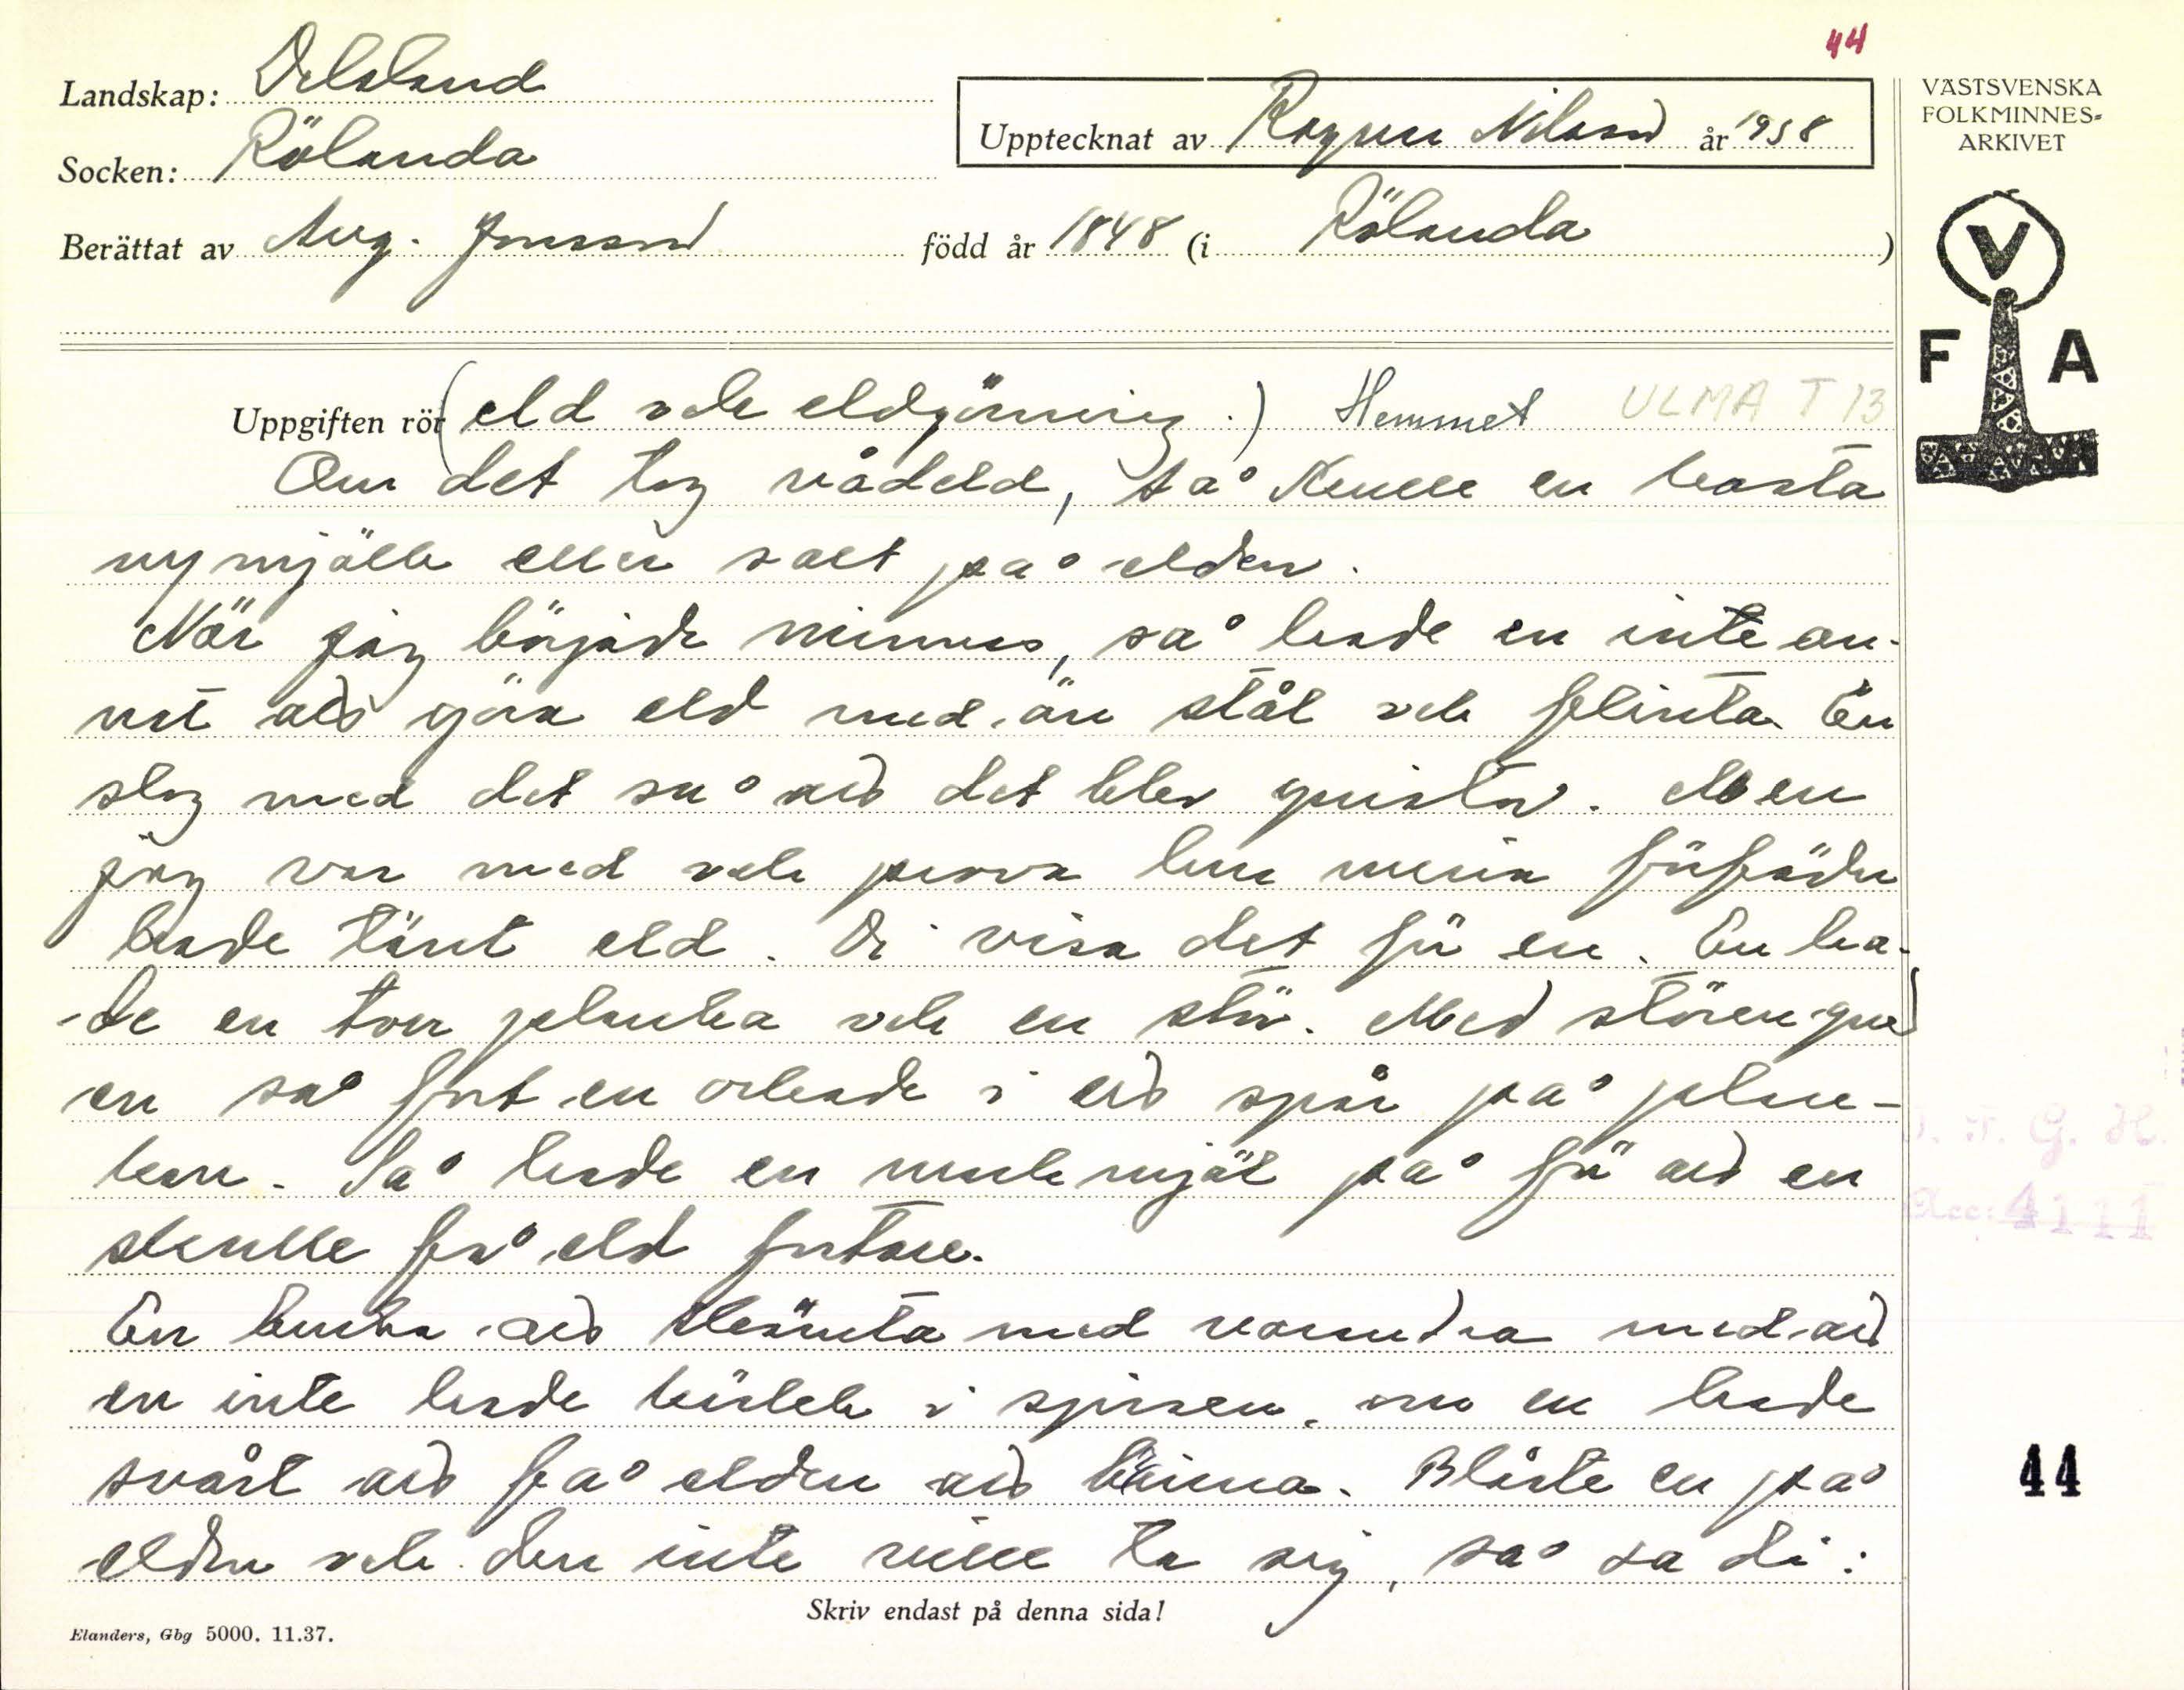 44
Landskap: Dalsland
Socken: Rölanda
Upptecknat av Ragnar Nilsson år 1938
Berättat av Aug. Jonsson född år 1848 (i Rölanda)
VÄSTSVENSKA
FOLKMINNES-
ARKIVET
V
F A
Uppgiften rör (eld och eldgörning.) Hemmet ULMA T 13
Om det tog vådeld, så skulle en kasta
nymjölk eller salt på elden.
När jag började minnas, så hade en inte an-
nat att göra eld med än stål och flinta. En
slog med det så att det blev gnistor. Men
jag var med och prova hur mina förfäder
hade tänt eld. Di visa det för en. En ha-
de en torr planka och en stör. Med stören gned
en så fort en orkade i ett spår på plan-
kan. Så hade en mjöl på för att en
skulle få eld fortare.
En bruka att skämta med varandra med att
en inte hade kärlek i spisen, om en hade
svårt att få elden att brinna. Blåste en på
elden och den inte ville ta sig, så sa di:
Skriv endast på denna sida!
Elanders, Gbg 5000. 11.37.
V. F. G. H.
Acc: 4111
44